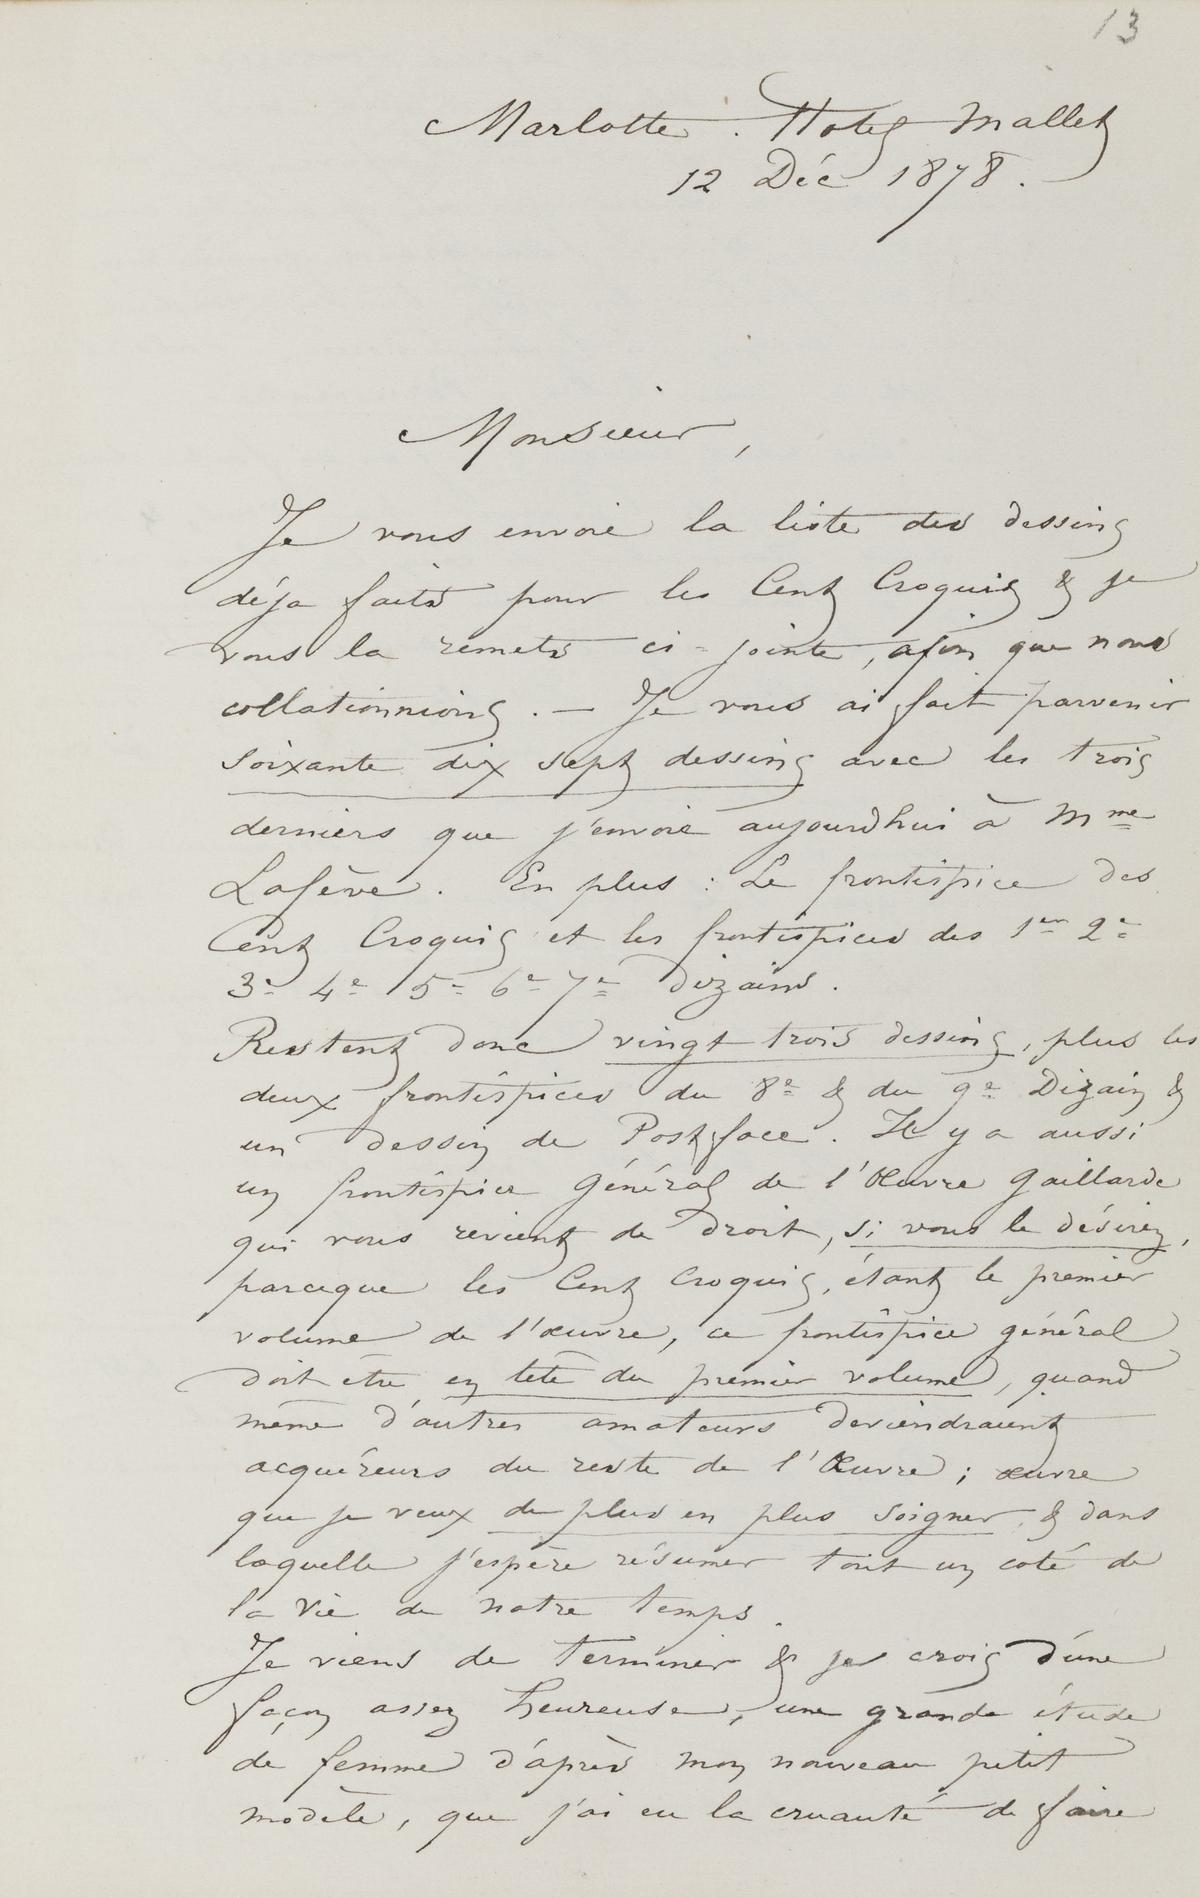 13
Marlotte. Hotel Mallet
12 Déc 1878.
Monsieur,
Je vous envoie la liste des dessins
déja faits pour les Cent Croquis & je
vous la remets ci-jointe, afin que nous
collationnions. — Je vous ai fait parvenir
soixante dix sept dessins avec les trois
derniers que j'envoie aujourdhui à Mme
Lafève. En plus : Le frontispice des
Cent Croquis et les frontispices des 1er 2e
3e 4e 5e 6e 7e Dizains.
Restent donc vingt trois dessins, plus les
deux frontispices du 8e & du 9e Dizain &
un dessin de Postface. Il y a aussi
un frontispice Général de l'Œuvre Gaillarde
qui vous revient de droit, si vous le désirez,
parceque les Cent Croquis, étant le premier
volume de l'œuvre, ce frontispice général
doit être en tête du premier volume, quand
même d'autres amateurs deviendraient
acquéreurs du reste de l'Œuvre ; œuvre
que je veux de plus en plus soigner & dans
laquelle j'espère résumer tout un coté de
la vie de notre temps.
Je viens de terminer & je crois d'une
façon assez heureuse, une grande étude
de femme d'après mon nouveau petit
modèle, que j'ai eu la cruauté de faire